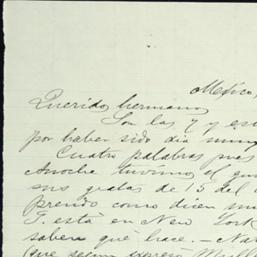 Mexico,
Querido hermano
Son las 7 y es
por haber sido dia
Cuatro palabras mas
Anoche tuvimos el
sus gratas de 15 del
prendo como dicen
T. está en New York
saber qué hace. — Na
(que segun expresó